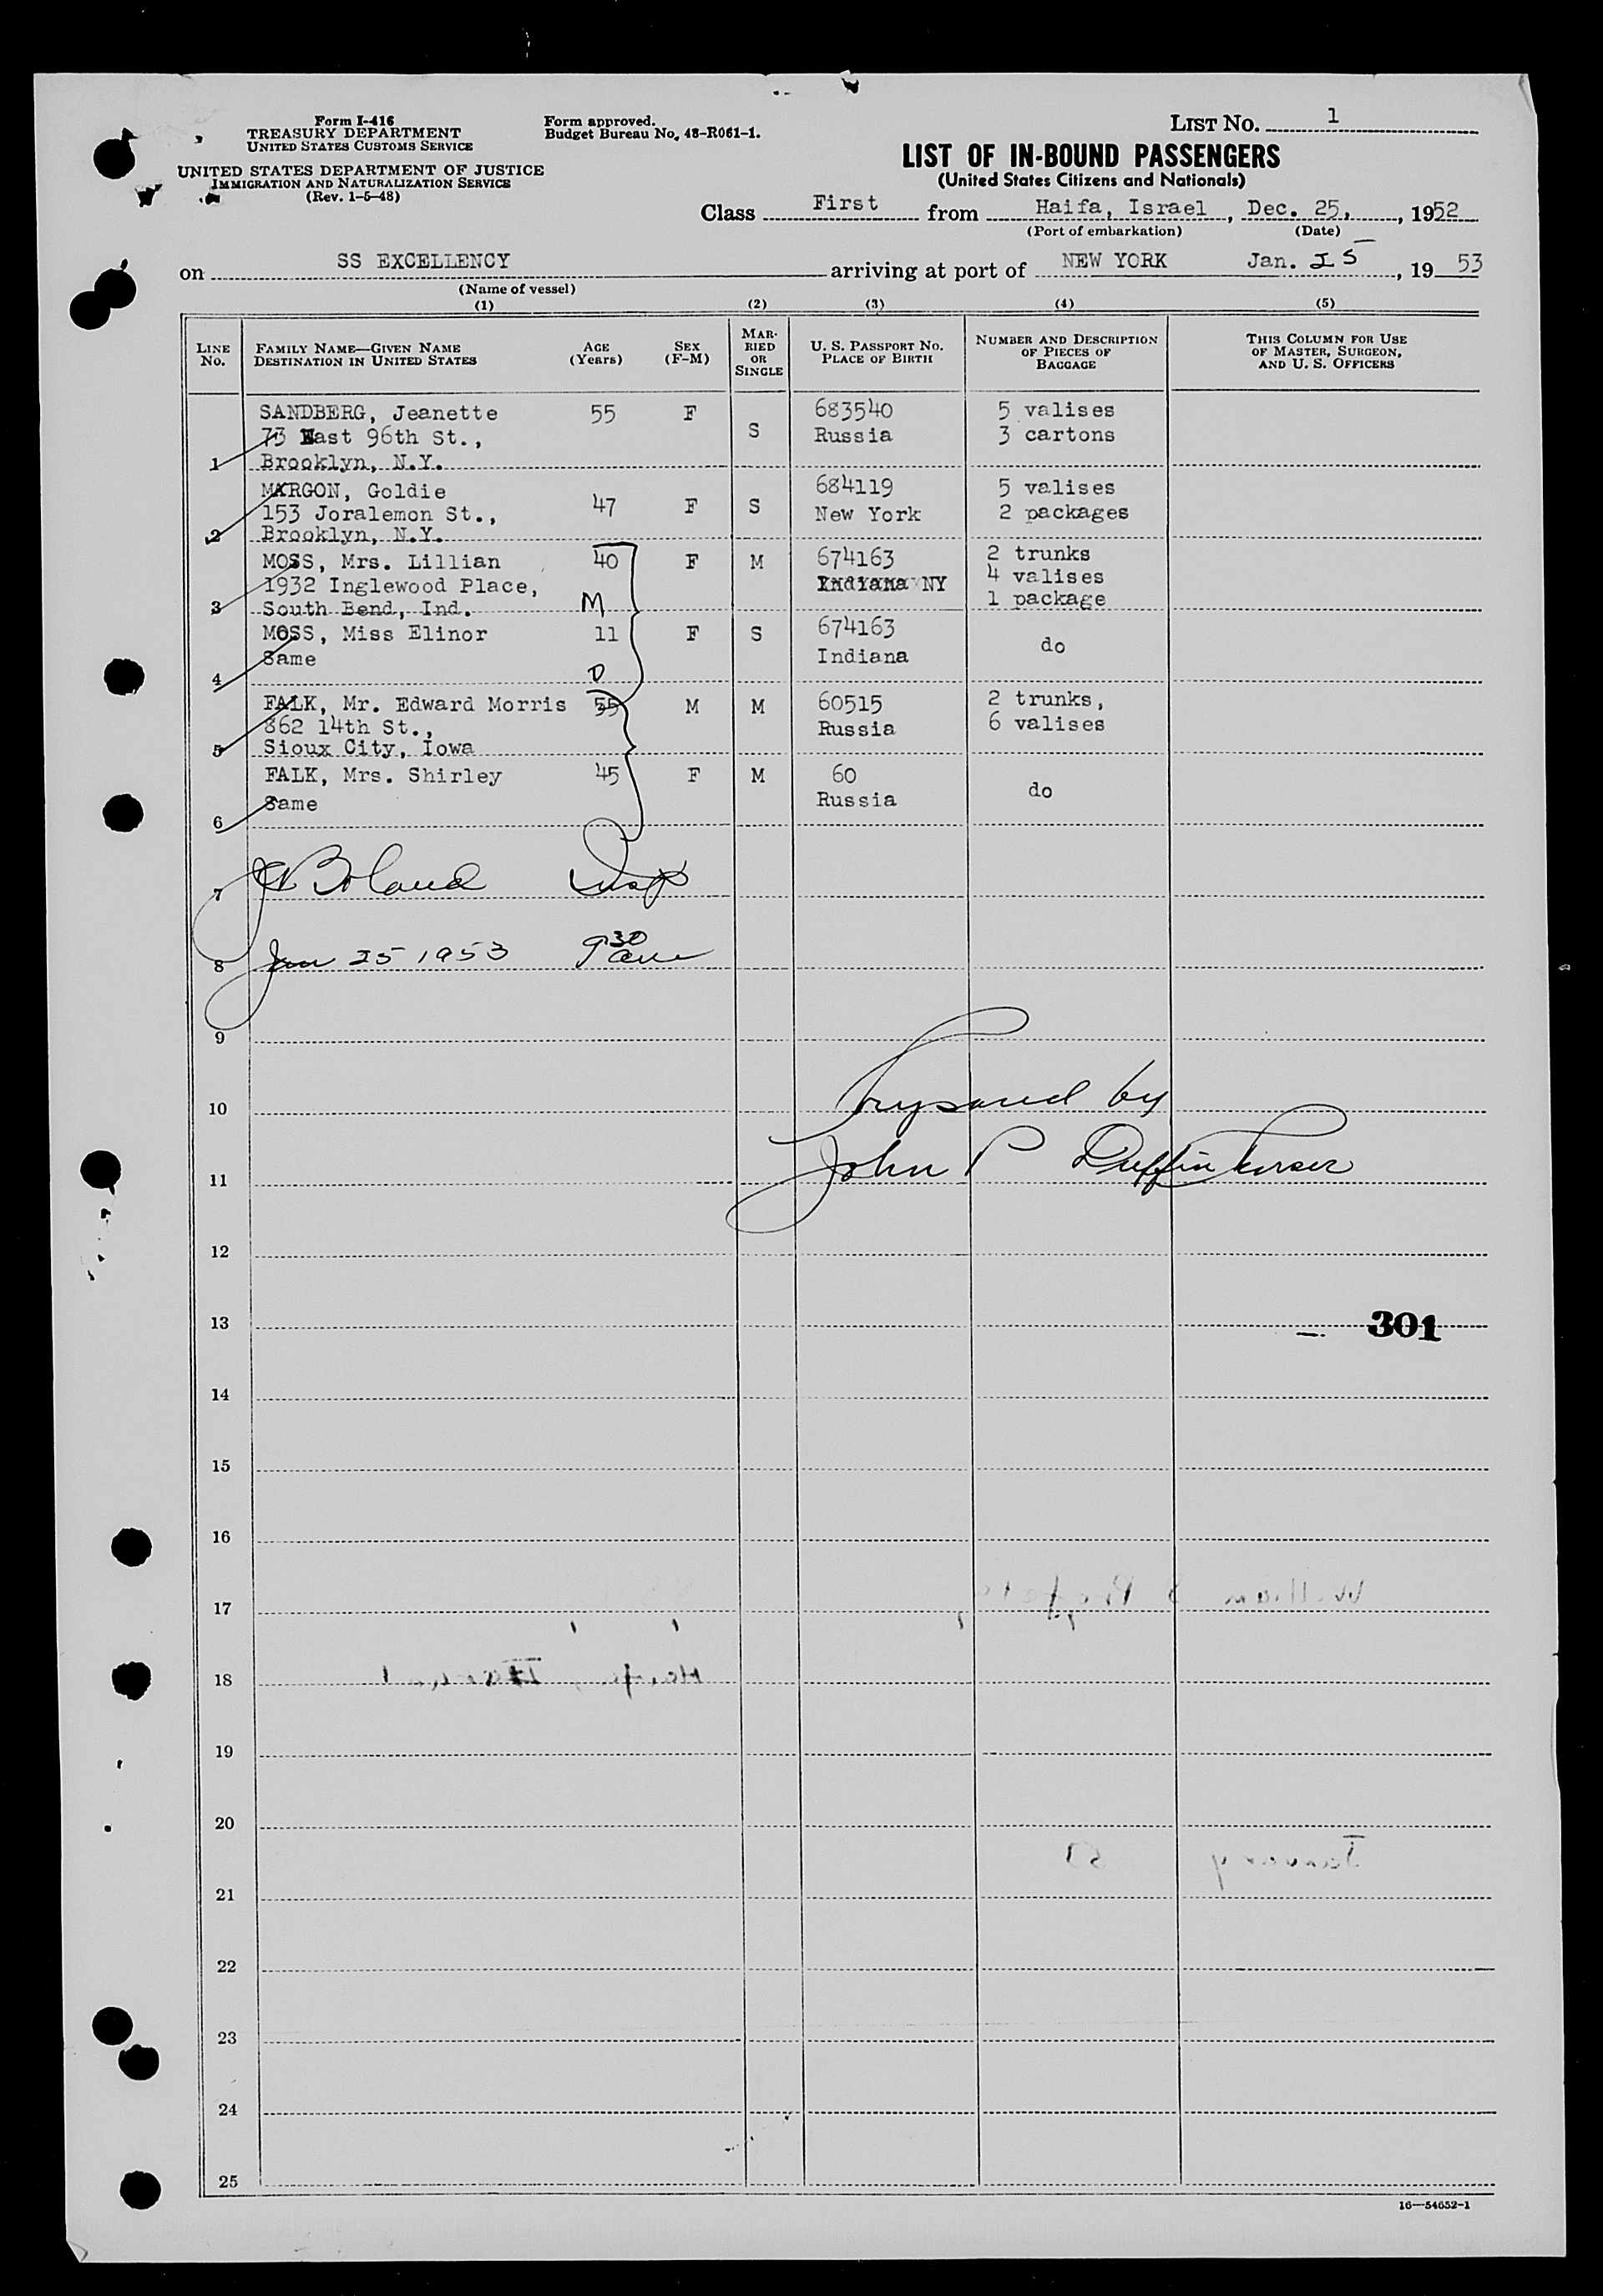 Form I-416
TREASURY DEPARTMENT
UNITED STATES CUSTOMS SERVICE
UNITED STATES DEPARTMENT OF JUSTICE
IMMIGRATION AND NATURALIZATION SERVICE
(Rev. 1-5-48)
Form approved.
Budget Bureau No. 48-R061-1.
LIST NO. 1
LIST OF IN-BOUND PASSENGERS
(United States Citizens and Nationals)
Class First from Haifa, Israel, Dec. 25, , 1952
(Port of embarkation) (Date)
on SS EXCELLENCY arriving at port of NEW YORK Jan. 15 , 19 53
(Name of vessel)
(1) (2) (3) (4) (5)
LINE NO. FAMILY NAME—GIVEN NAME DESTINATION IN UNITED STATES AGE (Years) SEX (F-M) MARRIED OR SINGLE U. S. PASSPORT NO. PLACE OF BIRTH NUMBER AND DESCRIPTION OF PIECES OF BAGGAGE THIS COLUMN FOR USE OF MASTER, SURGEON, AND U. S. OFFICERS
SANDBERG, Jeanette 55 F 683540 5 valises
73 East 96th St., S Russia 3 cartons
1 Brooklyn, N.Y.
MARGON, Goldie 47 F S 684119 5 valises
153 Joralemon St., New York 2 packages
2 Brooklyn, N.Y.
MOSS, Mrs. Lillian 40 F M 674163 2 trunks
1932 Inglewood Place, Indiana NY 4 valises
3 South Bend, Ind. M 1 package
MOSS, Miss Elinor 11 F S 674163 do
Same Indiana
4 D
FALK, Mr. Edward Morris 55 M M 60515 2 trunks,
862 14th St., Russia 6 valises
5 Sioux City, Iowa
FALK, Mrs. Shirley 45 F M 60 do
Same Russia
6
7 Boland Insp
8 Jan 15 1953 9 30 am
9
10 by
11 John P Duffin Purser
12
13 301
14
15
16
17
18
19
20
21
22
23
24
25
16—54652-1